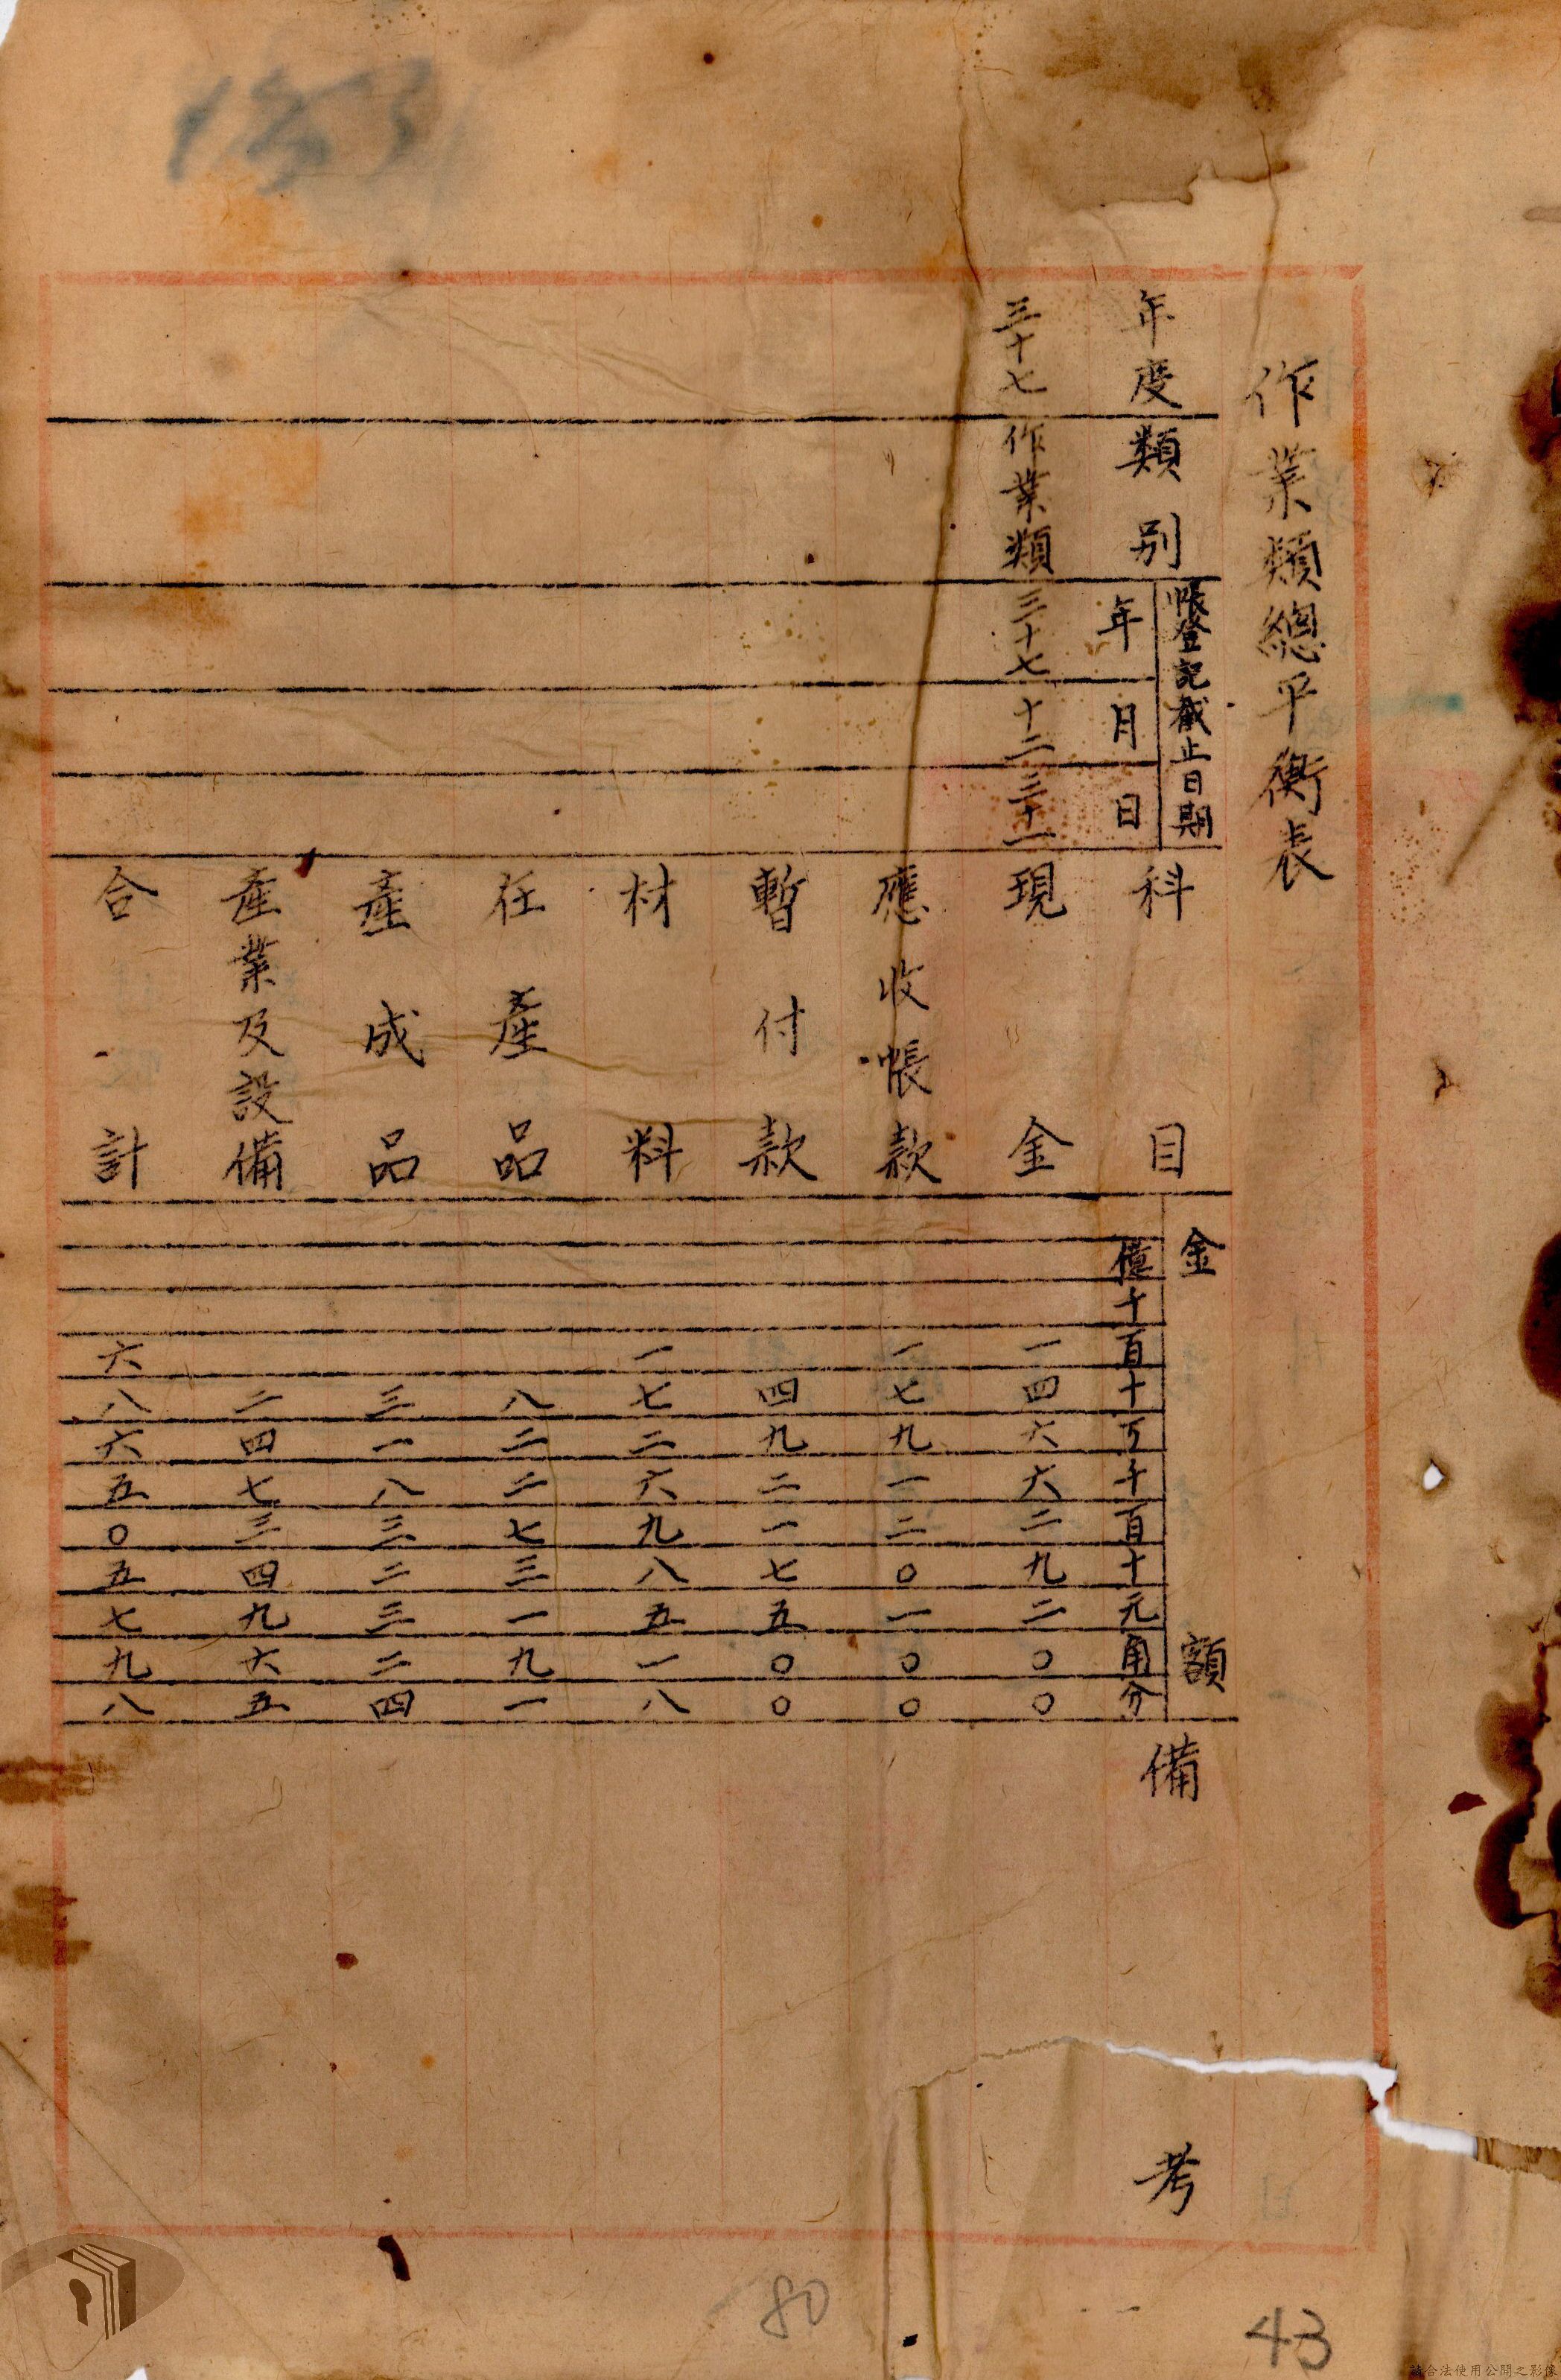 作業類總平衡表
年度 類別 帳登記截止日期 年 月 日 科目 金額 億十百十万千百十元角分 備考
三十七 作業類 三十七 十二 三十一 現金 一四六六二九二〇〇
應收帳款 一七九一二〇一〇〇
暫付款 四九二一七五〇〇
材料 一七二六九八五一八
在產品 八二二七三一九一
產成品 三一八三二三二四
產業及設備 二四七三四九六五
合計 六八六五〇五七九八
80
43